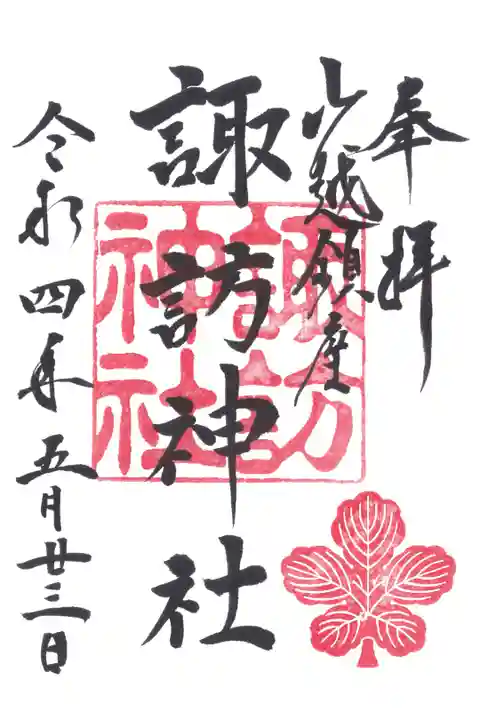 奉拝
越鎮座
諏訪神社
令和四年五月廿三日
諏訪
神社